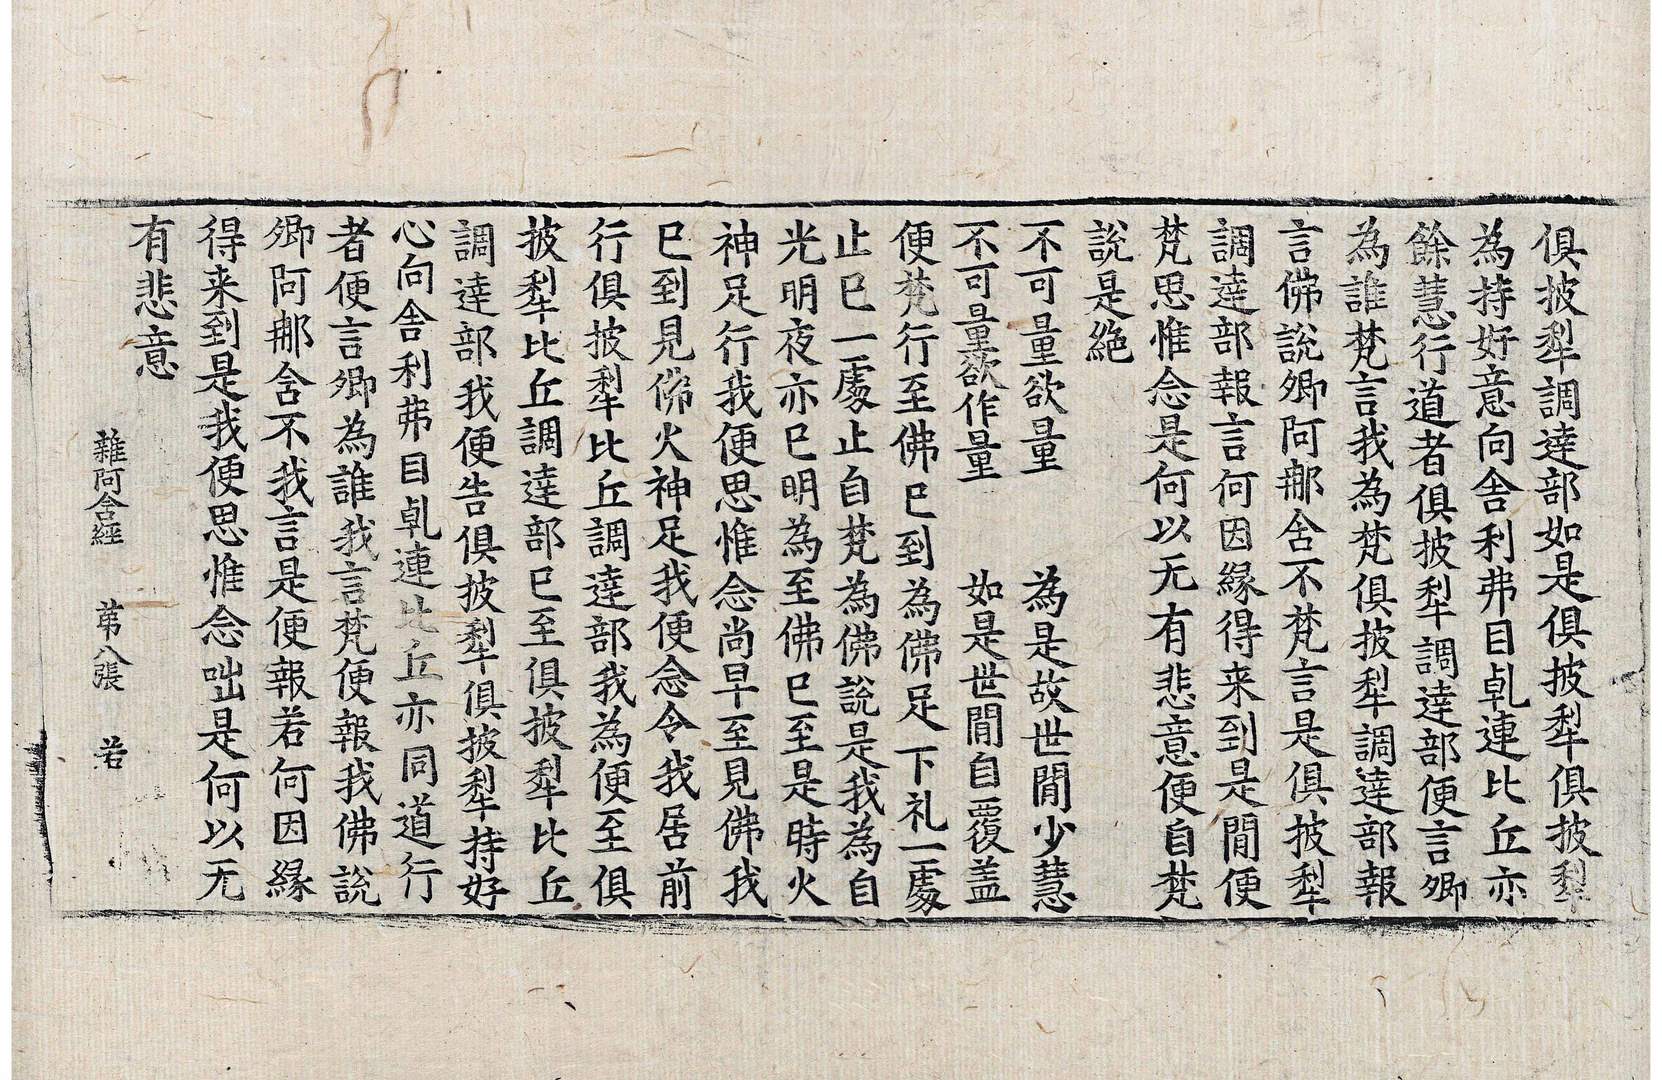 俱披犁調達部如是俱披犁俱披犁
為持好意向舍利弗目乹連比丘亦
餘慧行道者俱披犁調達部便言卿
為誰梵言我為梵俱披犁調達部報
言佛說卿阿那舍不梵言是俱披犁
調達部報言何因緣得来到是間便
梵思惟念是何以无有悲意便自梵
說是絶
不可量欲量 為是故世間少慧
不可量欲作量 如是世間自覆盖
便梵行至佛已到為佛足下礼一處
止已一處止自梵為佛說是我為自
光明夜亦已明為至佛已至是時火
神足行我便思惟念尚早至見佛我
已到見佛火神足我便念令我居前
行俱披犁比丘調達部我為便至俱
披犁比丘調達部已至俱披犁比丘
調達部我便告俱披犁俱披犁持好
心向舍利弗目乹連比丘亦同道行
者便言卿為誰我言梵便報我佛說
卿阿那舍不我言是便報若何因緣
得来到是我便思惟念咄是何以无
有悲意
雜阿含經 苐八張 若